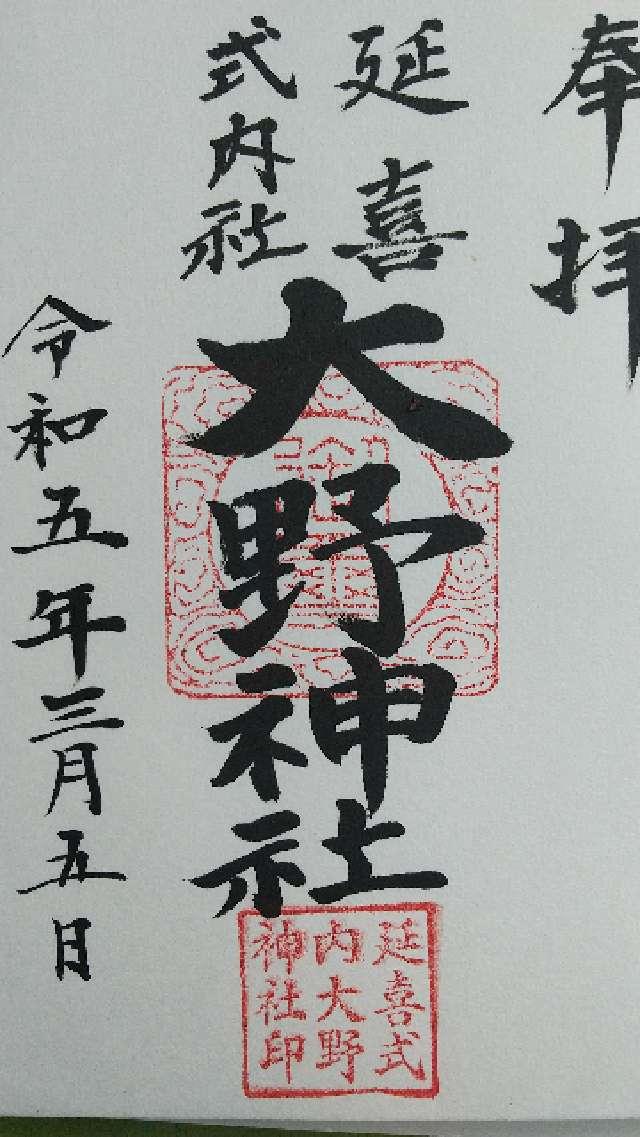 奉拝
延喜
式内社
大野神社
令和五年三月五日
延喜式
内大野
神社印